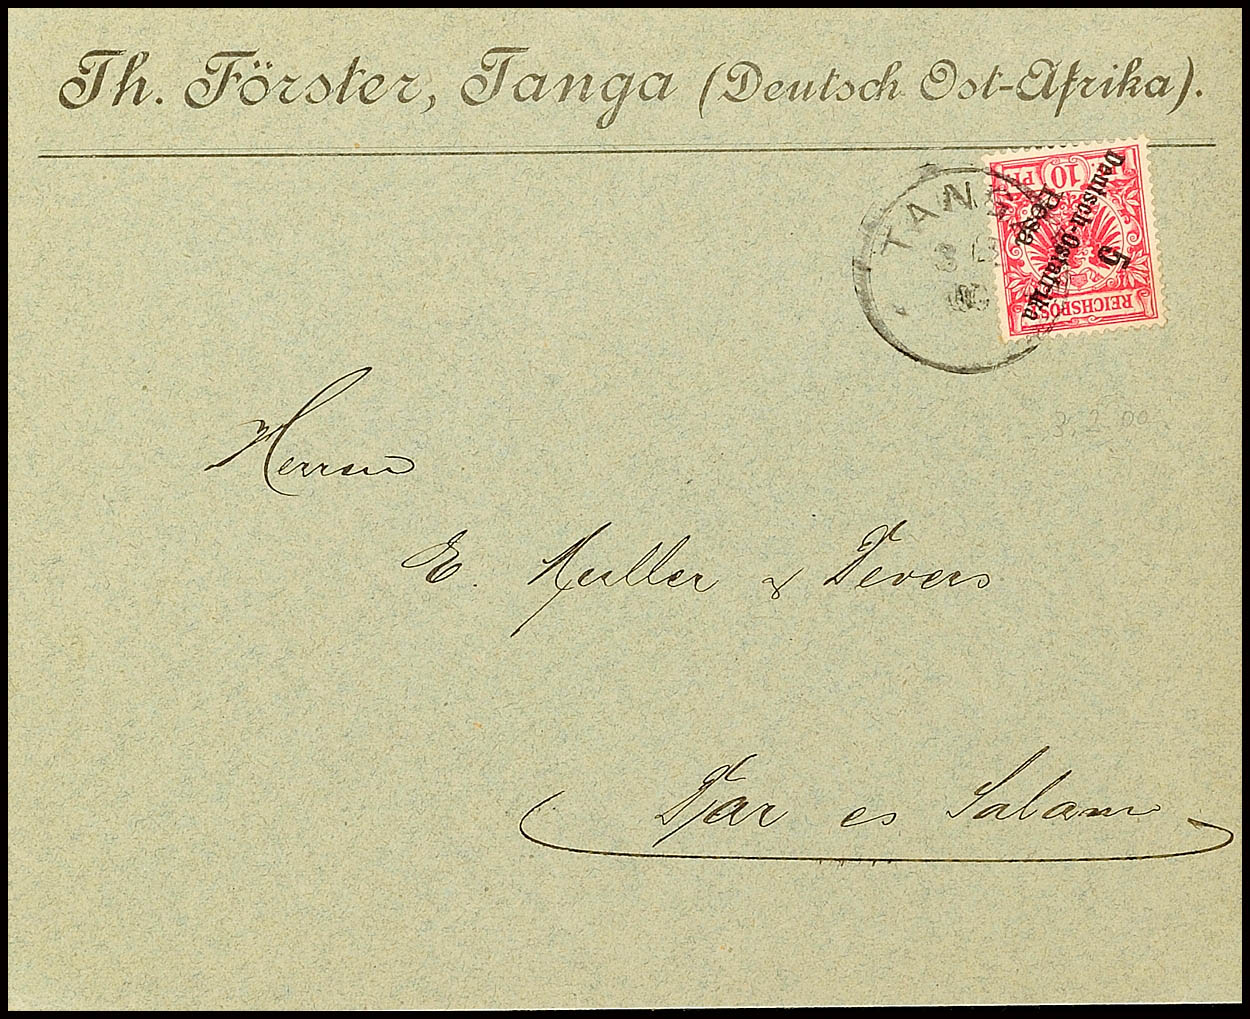 Th. Förster, Tanga (Deutsch Ost-Afrika).
TANGA
3 2
00
10 PF
Deutsch-Ostafrika
5 Pesa
REICHSPOST
3.2.00
Herren
E. Müller & Devers
Dar es Salam